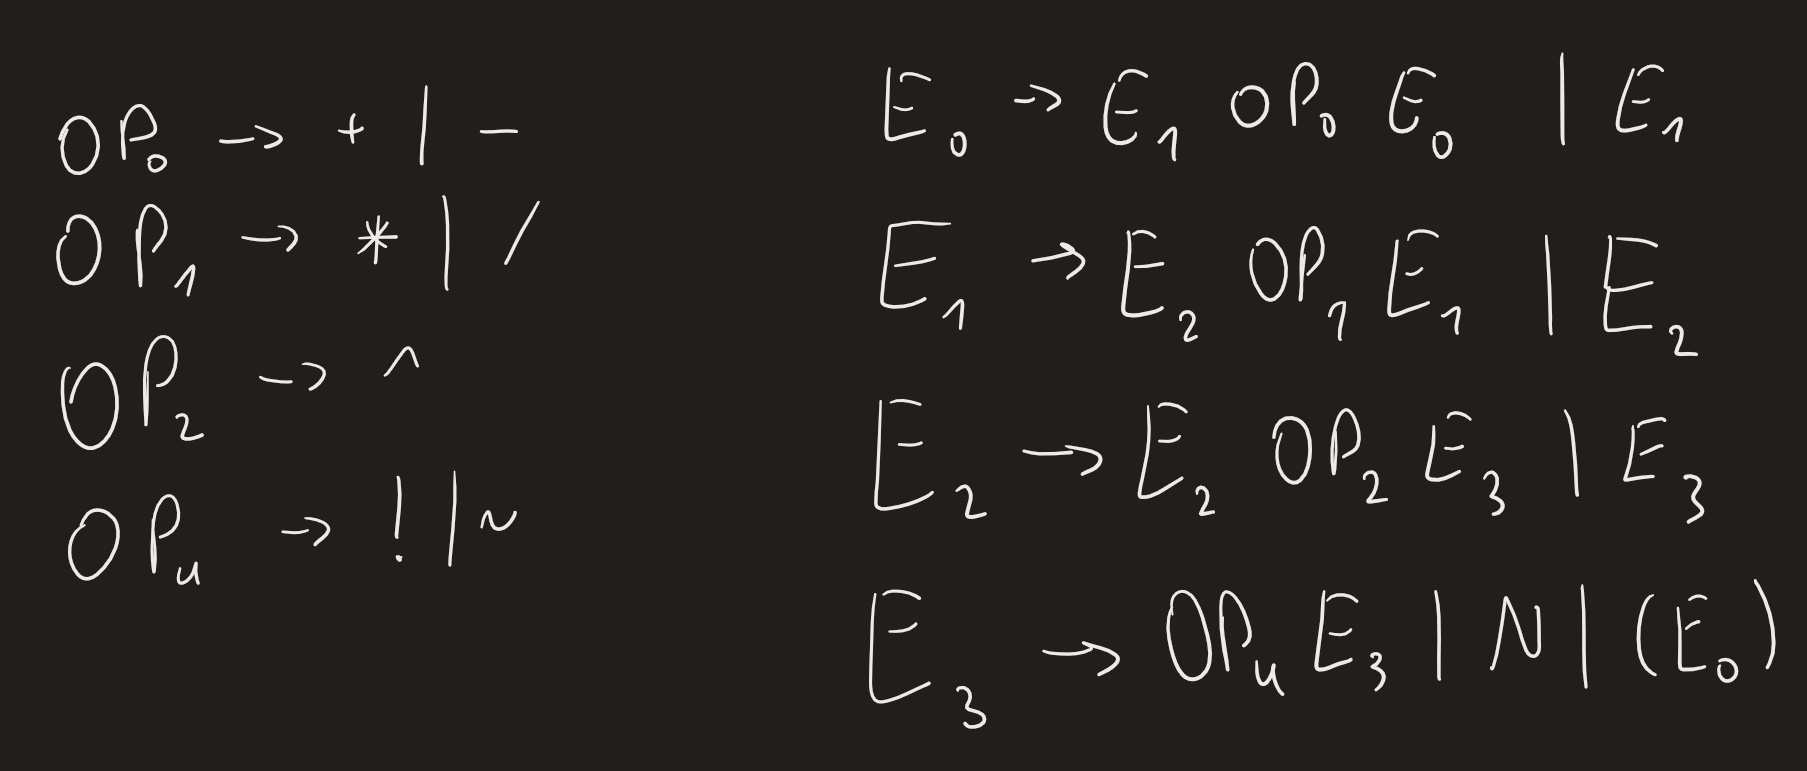 OP₀ → + | -
OP₁ → * | /
OP₂ → ^
OPᵤ → ! | ~
E₀ → E₁ OP₀ E₀ | E₁
E₁ → E₂ OP₁ E₁ | E₂
E₂ → E₂ OP₂ E₃ | E₃
E₃ → OPᵤ E₃ | N | (E₀)